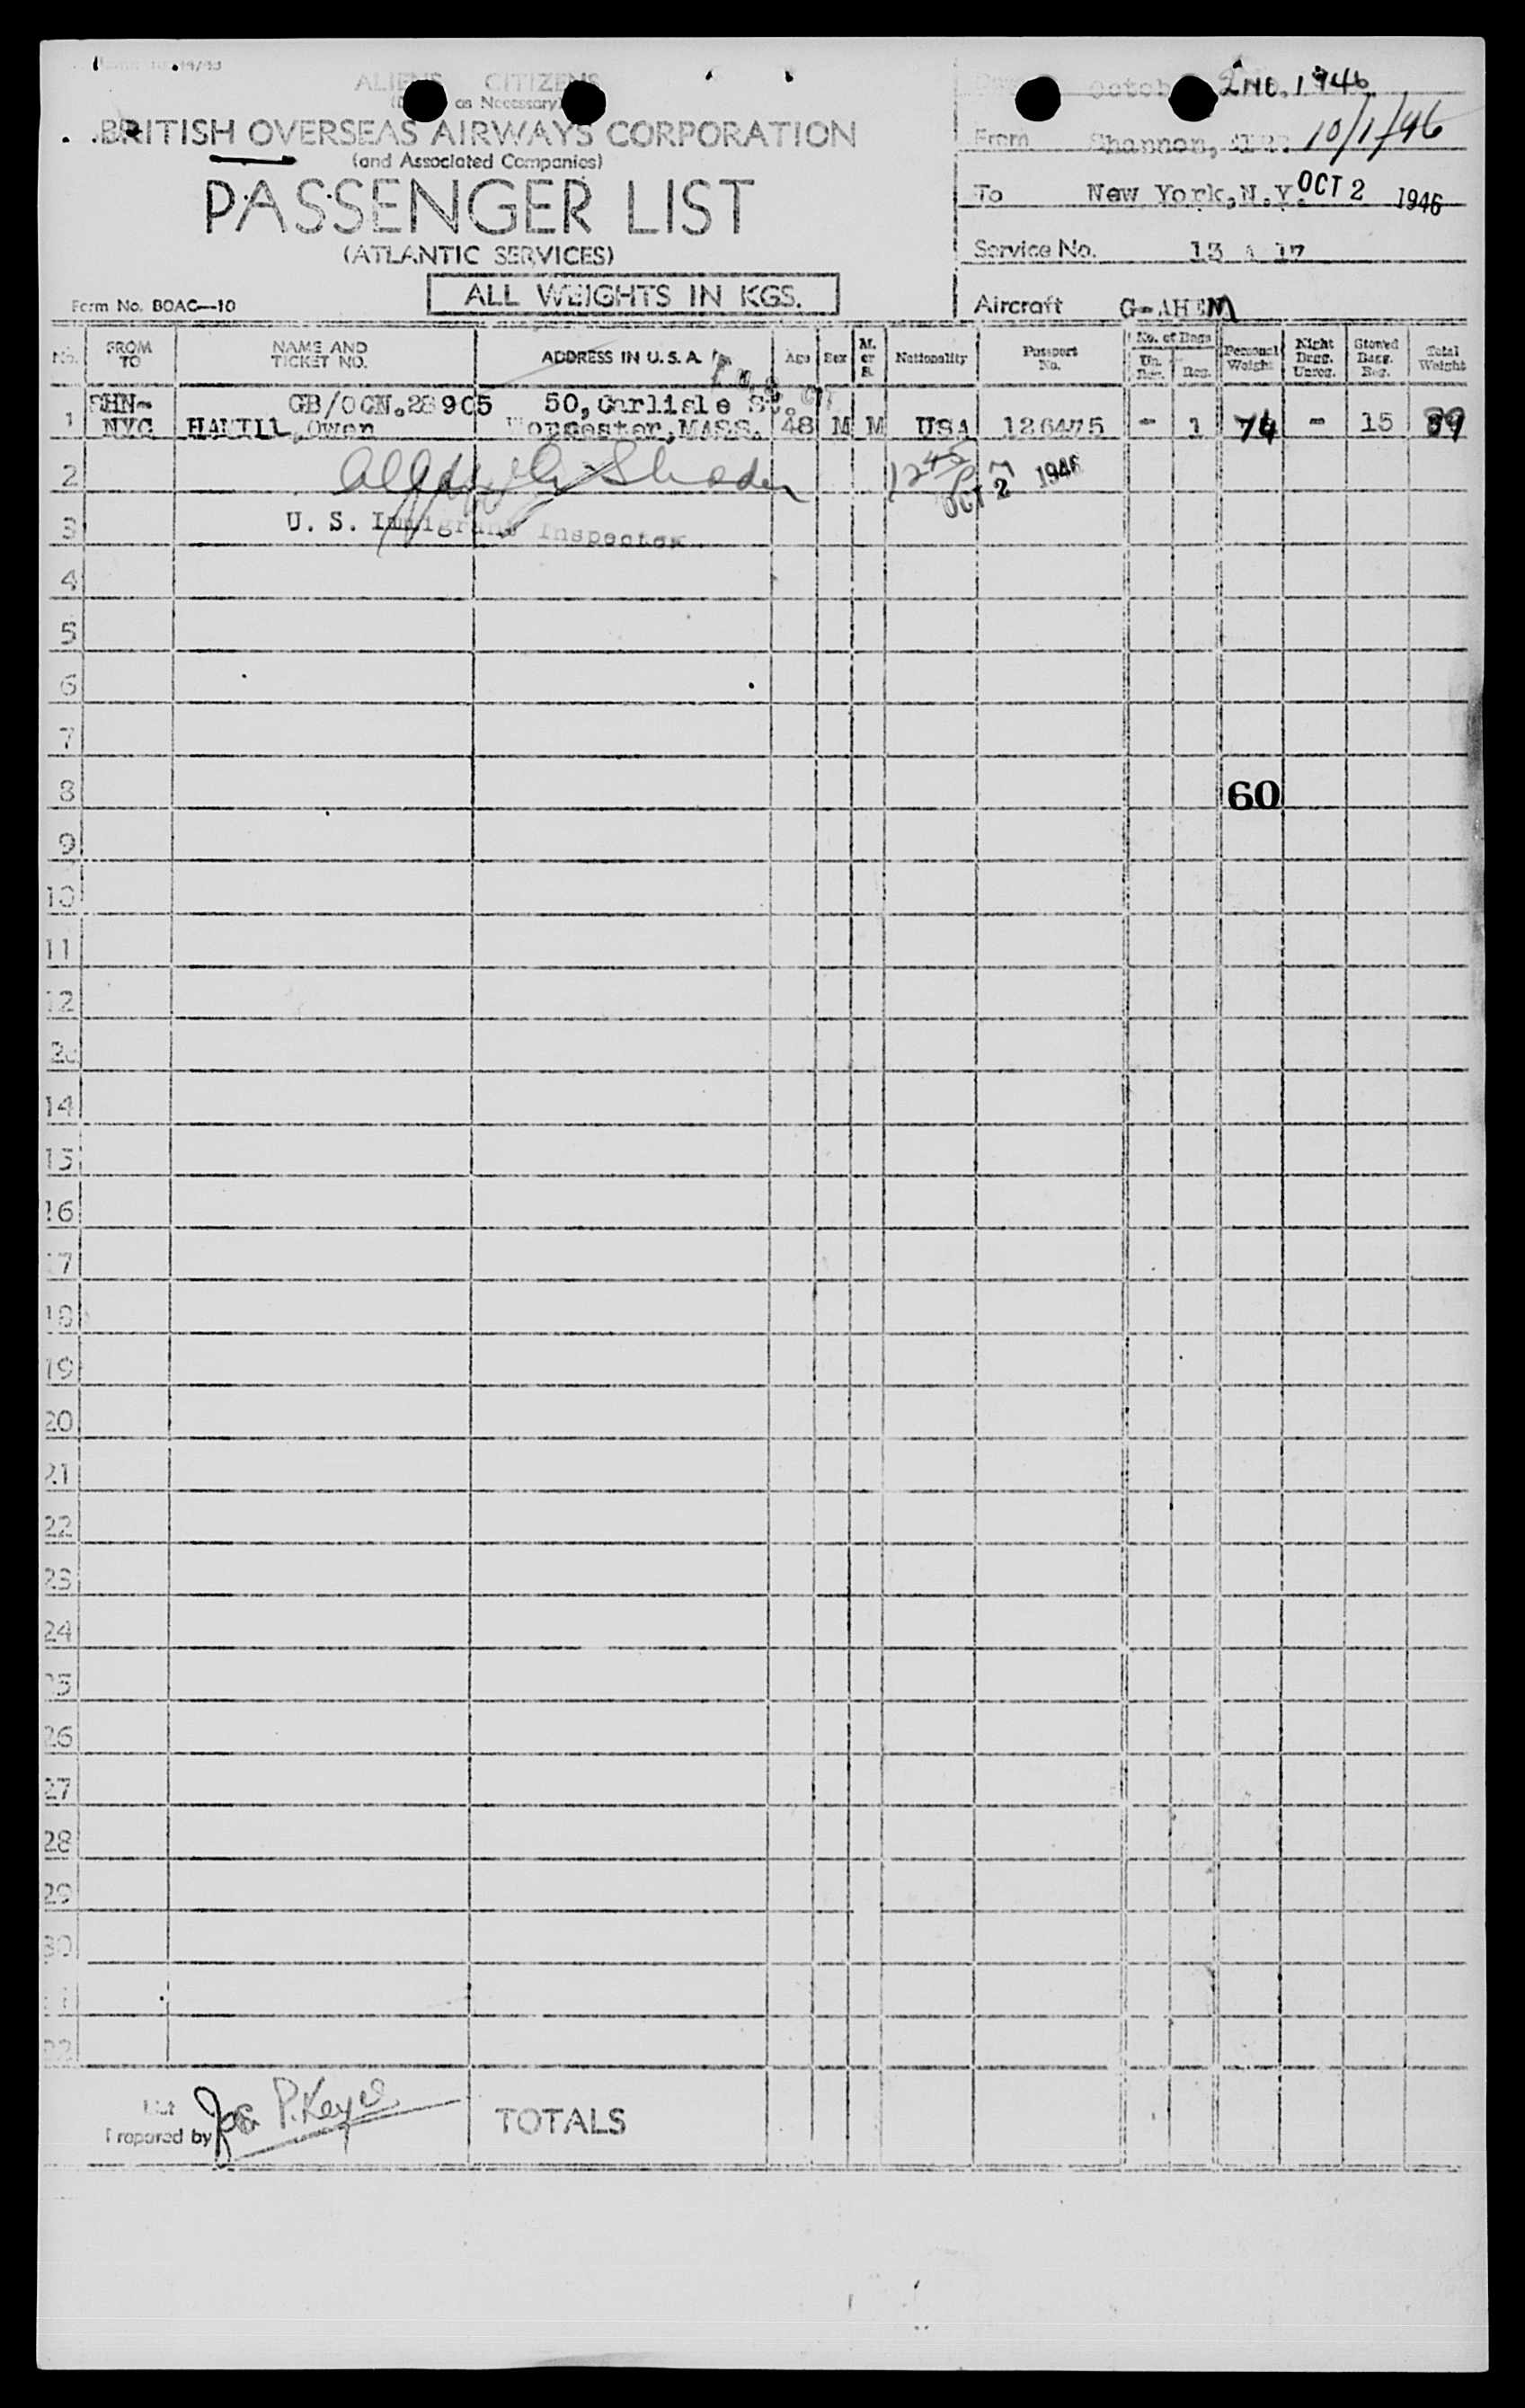 ALIENS CITIZENS
as Necessary)
BRITISH OVERSEAS AIRWAYS CORPORATION
(and Associated Companies)
PASSENGER LIST
(ATLANTIC SERVICES)
ALL WEIGHTS IN KGS.
Form No. BOAC—10
2ND. 1946
From Shannon, 10/1/46
To New York, N.Y. OCT 2 1946
Service No. 13 A 17
Aircraft G-AHEM
No. FROM TO NAME AND TICKET NO. ADDRESS IN U.S.A. Age Sex M. or S. Nationality Passport No. No. of Bags Un. Reg. Reg. Personal Weight Night Bagg. Unreg. Stowed Bagg. Reg. Total Weight
SHN- GB/OCN.28905 50, Carlisle St.
1 NYC HAMILL, Owen Worcester, MASS. 48 M M USA 126475 - 1 74 - 15 89
2 OCT 2 1946
3 U. S. Immigrant Inspector
4
5
6
7
8 60
9
10
11
12
14
15
16
17
18
19
20
21
22
23
24
25
26
27
28
29
30
List
Prepared by Jos P. Keys
TOTALS